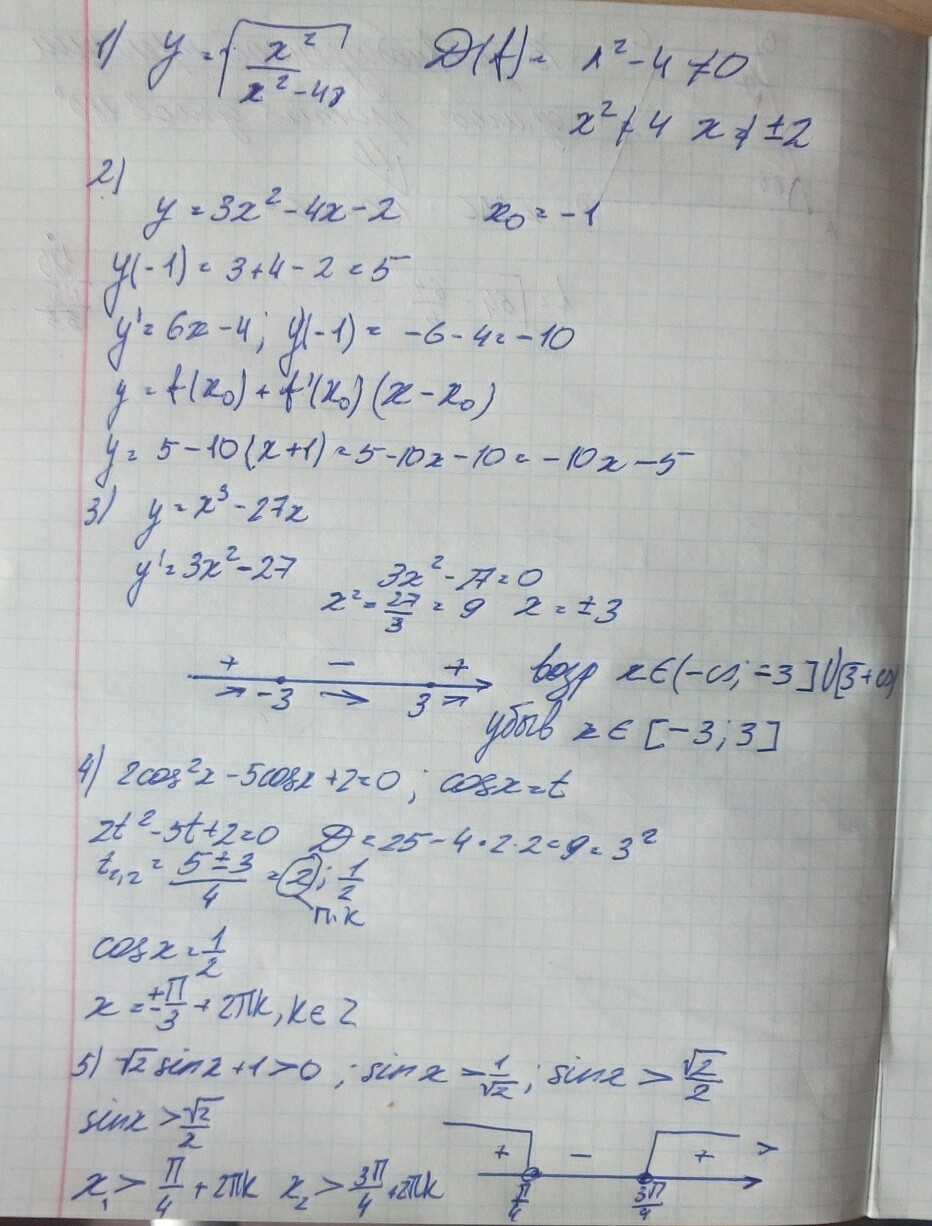 1) y = √(x²/(x²-4)) D(f) = x²-4 ≠ 0
x² ≠ 4 x ≠ ±2
2)
y = 3x²-4x-2 x₀ = -1
y(-1) = 3+4-2 = 5
y' = 6x-4; y'(-1) = -6-4 = -10
y = f(x₀) + f'(x₀)(x-x₀)
y = 5-10(x+1) = 5-10x-10 = -10x-5
3) y = x³-27x
y' = 3x²-27 3x²-27=0
x² = 27/3 = 9 x = ±3
+ - + возр x∈(-∞; -3]∪[3+∞)
-3 3 убыв x∈[-3;3]
4) 2cos²x-5cosx+2=0; cosx=t
2t²-5t+2=0 D = 25-4·2·2=9=3²
t₁,₂ = (5±3)/4 = 2; 1/2
п.к
cosx = 1/2
x = ±π/3 + 2πk, k∈Z
5) √2 sinx+1>0; sinx > 1/√2; sinx > √2/2
sinx > √2/2
+ - + >
x₁ > π/4 + 2πk x₂ > 3π/4 + 2πk π/4 3π/4